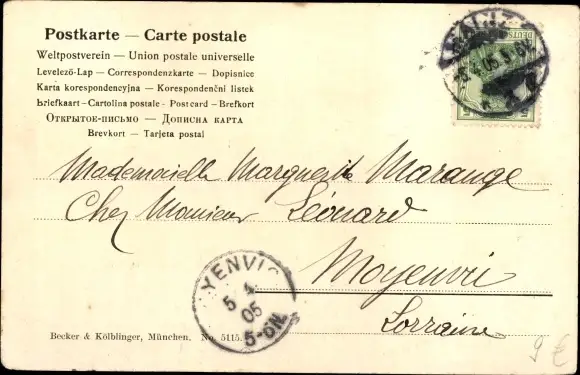 Postkarte — Carte postale
Weltpostverein — Union postale universelle
Levelező-Lap — Correspondenzkarte — Dopisnice
Karta korespondencyjna — Korespondenční listek
Briefkaart - Cartolina postale - Postcard — Brefkort
ОТКРЫТОЕ-ПИСЬМО — ДОПИСНА КАРТА
Brevkort — Tarjeta postal
Mademoiselle Marguerite Marange
Chez Monsieur Léonard
Moyenvic
Lorraine
YENVIC
5 4
05
5-6N.
Becker & Kölblinger, München. No. 5115.
9 €